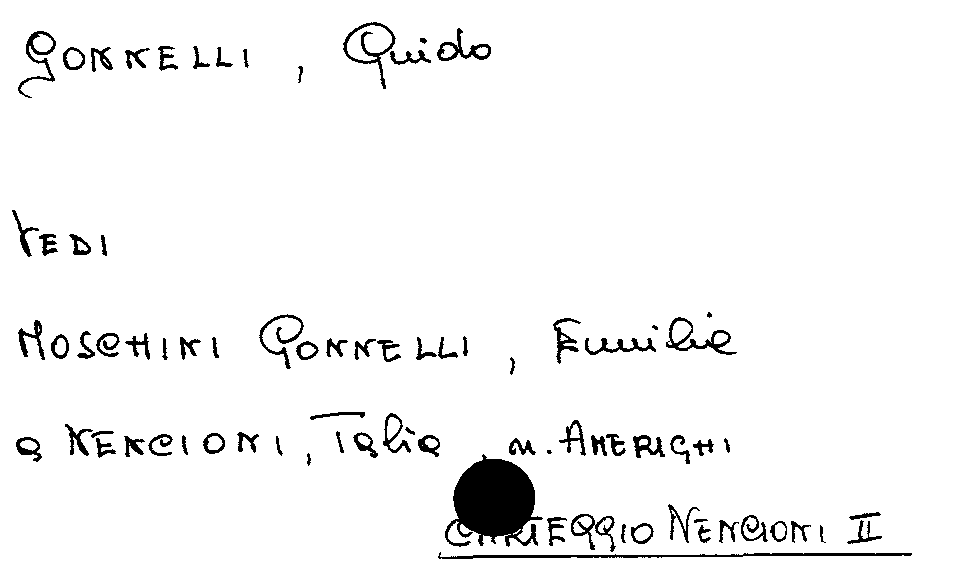 GONNELLI, Guido
VEDI
MOSCHINI GONNELLI, Emilia
a NENCIONI, Talia, n. AMERIGHI
CARTEGGIO NENCIONI II